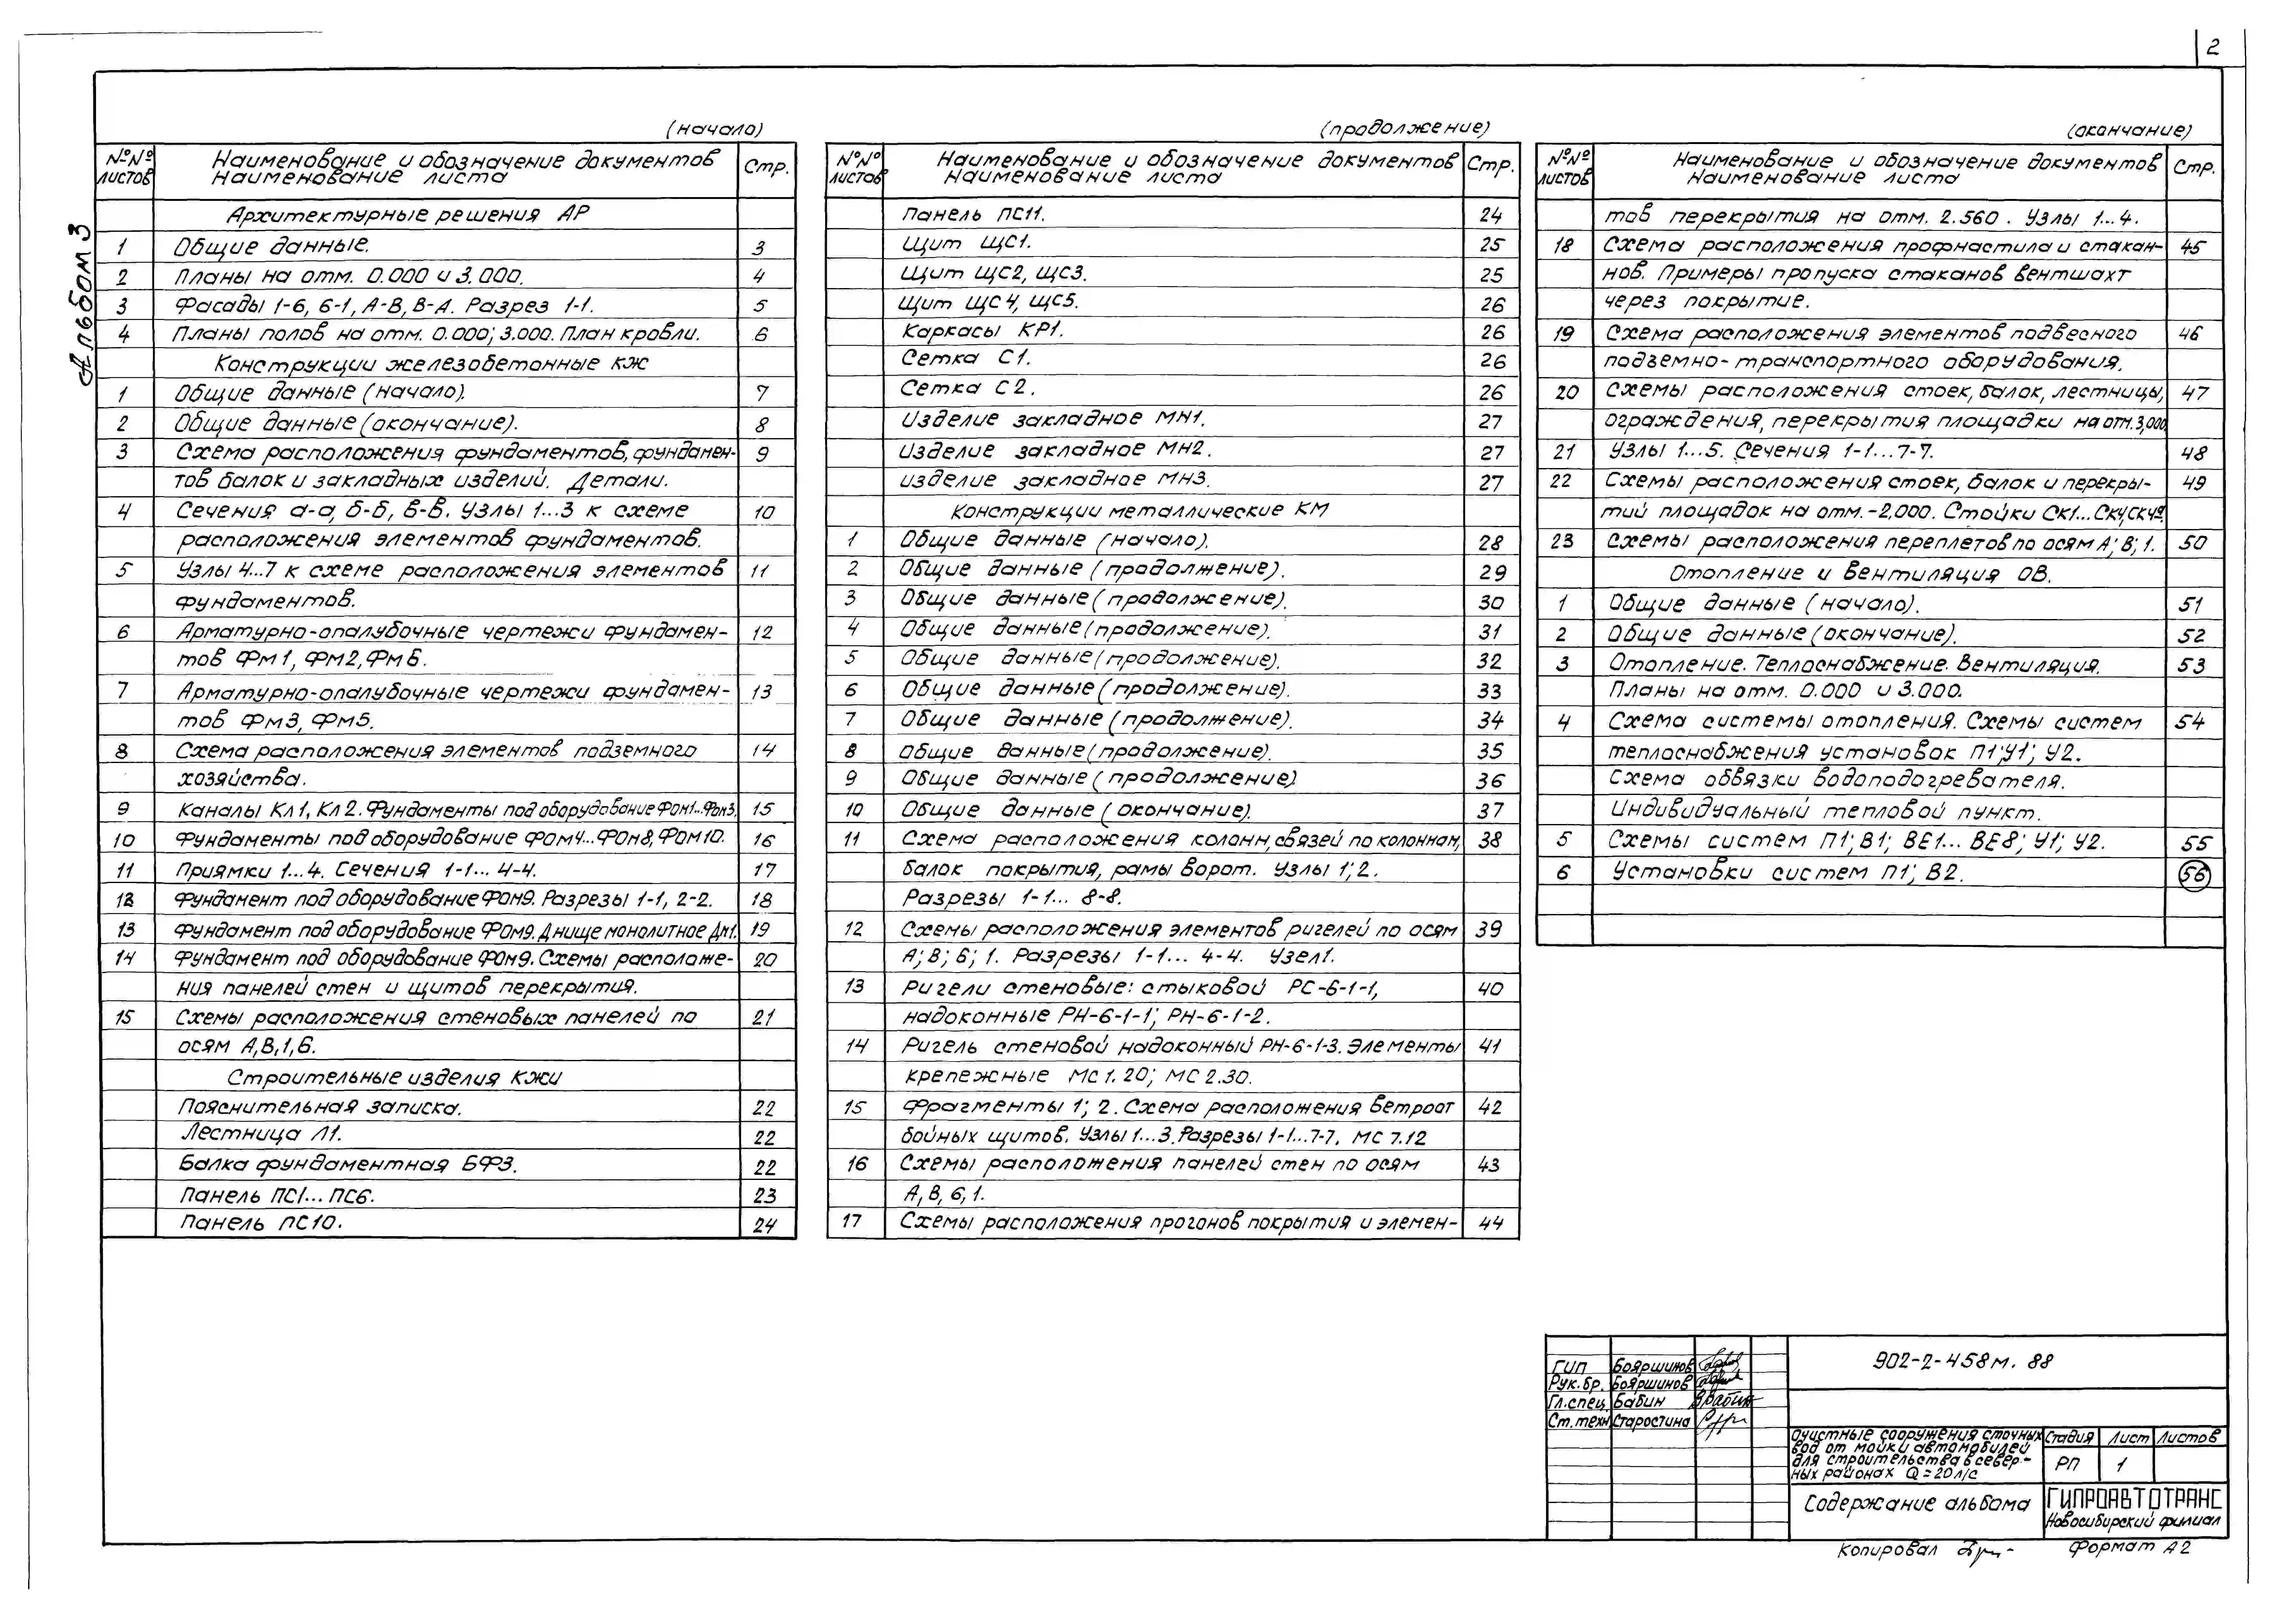 2
Альбом 3
(начало)
№№ листов | Наименование и обозначение документов Наименование листа | Стр.
Архитектурные решения АР
1 Общие данные. 3
2 Планы на отм. 0.000 и 3.000. 4
3 Фасады 1-6, 6-1, А-В, В-А. Разрез 1-1. 5
4 Планы полов на отм. 0.000; 3.000. План кровли. 6
Конструкции железобетонные КЖ
1 Общие данные (начало). 7
2 Общие данные (окончание). 8
3 Схема расположения фундаментов, фундамен- 9
тов балок и закладных изделий. Детали.
4 Сечения а-а, б-б, в-в. Узлы 1...3 к схеме 10
расположения элементов фундаментов.
5 Узлы 4...7 к схеме расположения элементов 11
фундаментов.
6 Арматурно-опалубочные чертежи фундамен- 12
тов Фм1, Фм2, Фм6.
7 Арматурно-опалубочные чертежи фундамен- 13
тов Фм3, Фм5.
8 Схема расположения элементов подземного 14
хозяйства.
9 Каналы Кл1, Кл2. Фундаменты под оборудование Фом1...Фом3. 15
10 Фундаменты под оборудование Фом4...Фом8, Фом10. 16
11 Приямки 1...4. Сечения 1-1... 4-4. 17
12 Фундамент под оборудование Фом9. Разрезы 1-1, 2-2. 18
13 Фундамент под оборудование Фом9. Днище монолитное Дм1. 19
14 Фундамент под оборудование Фом9. Схемы расположе- 20
ния панелей стен и щитов перекрытия.
15 Схемы расположения стеновых панелей по 21
осям А,В,1,6.
Строительные изделия КЖИ
Пояснительная записка. 22
Лестница Л1. 22
Балка фундаментная БФ3. 22
Панель ПС1... ПС6. 23
Панель ПС10. 24
(продолжение)
№№ листов | Наименование и обозначение документов Наименование листа | Стр.
Панель ПС11. 24
Щит ЩС1. 25
Щит ЩС2, ЩС3. 25
Щит ЩС4, ЩС5. 26
Каркасы КР1. 26
Сетка С1. 26
Сетка С2. 26
Изделие закладное МН1. 27
Изделие закладное МН2. 27
изделие закладное МН3. 27
Конструкции металлические КМ
1 Общие данные (начало). 28
2 Общие данные (продолжение). 29
3 Общие данные (продолжение). 30
4 Общие данные (продолжение). 31
5 Общие данные (продолжение). 32
6 Общие данные (продолжение). 33
7 Общие данные (продолжение). 34
8 Общие данные (продолжение). 35
9 Общие данные (продолжение) 36
10 Общие данные (окончание). 37
11 Схема расположения колонн, связей по колоннам, 38
балок покрытия, рамы ворот. Узлы 1; 2.
Разрезы 1-1... 8-8.
12 Схемы расположения элементов ригелей по осям 39
А; В; 6; 1. Разрезы 1-1... 4-4. Узел 1.
13 Ригели стеновые: стыковой РС-6-1-1, 40
надоконные РН-6-1-1; РН-6-1-2.
14 Ригель стеновой надоконный РН-6-1-3. Элементы 41
крепежные МС 1.20; МС 2.30.
15 Фрагменты 1; 2. Схема расположения ветроот 42
бойных щитов. Узлы 1...3. Разрезы 1-1...7-7. МС 7.12
16 Схемы расположения панелей стен по осям 43
А, В, 6, 1.
17 Схемы расположения прогонов покрытия и элемен- 44
(окончание)
№№ листов | Наименование и обозначение документов Наименование листа | Стр.
тов перекрытия на отм. 2.560. Узлы 1...4.
18 Схема расположения профнастила и стакан- 45
нов. Примеры пропуска стаканов вентшахт
через покрытие.
19 Схема расположения элементов подвесного 46
подъемно-транспортного оборудования.
20 Схемы расположения стоек, балок, лестницы, 47
ограждения, перекрытия площадки на отм. 3,000
21 Узлы 1...5. Сечения 1-1...7-7. 48
22 Схемы расположения стоек, балок и перекры- 49
тий площадок на отм. -2,000. Стойки СК1...
23 Схемы расположения переплетов по осям А; В; 1. 50
Отопление и вентиляция ОВ.
1 Общие данные (начало). 51
2 Общие данные (окончание). 52
3 Отопление. Теплоснабжение. Вентиляция. 53
Планы на отм. 0.000 и 3.000.
4 Схема системы отопления. Схемы систем 54
теплоснабжения установок П1; У1; У2.
Схема обвязки водоподогревателя.
Индивидуальный тепловой пункт.
5 Схемы систем П1; В1; ВЕ1... ВЕ8; У1; У2. 55
6 Установки систем П1; В2. 56
ГИП Бояршинов
Рук. бр. Бояршинов
Гл. спец. Бабин
Ст. техн Старостина
902-2-458м. 88
Очистные сооружения сточных
вод от мойки автомобилей
для строительства в север-
ных районах Q = 20 л/с
Стадия Лист Листов
РП 1
Содержание альбома
ГИПРОАВТОТРАНС
Новосибирский филиал
Копировал
Формат А2